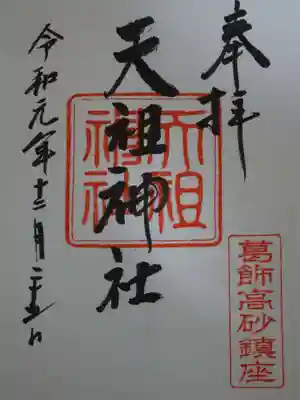 奉拝
天祖神社
天祖
神社
葛飾高砂鎮座
令和元年十二月二十五日